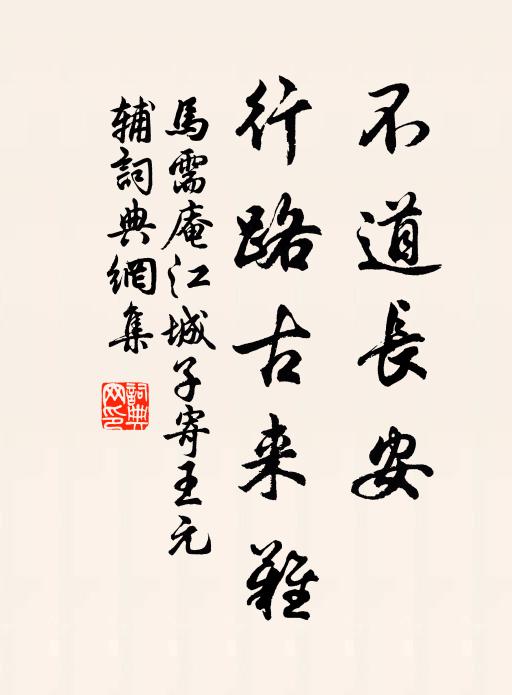 不道長安
行路古来難
馬需庵江城子寄王元
辅詞典網集
詞典網印